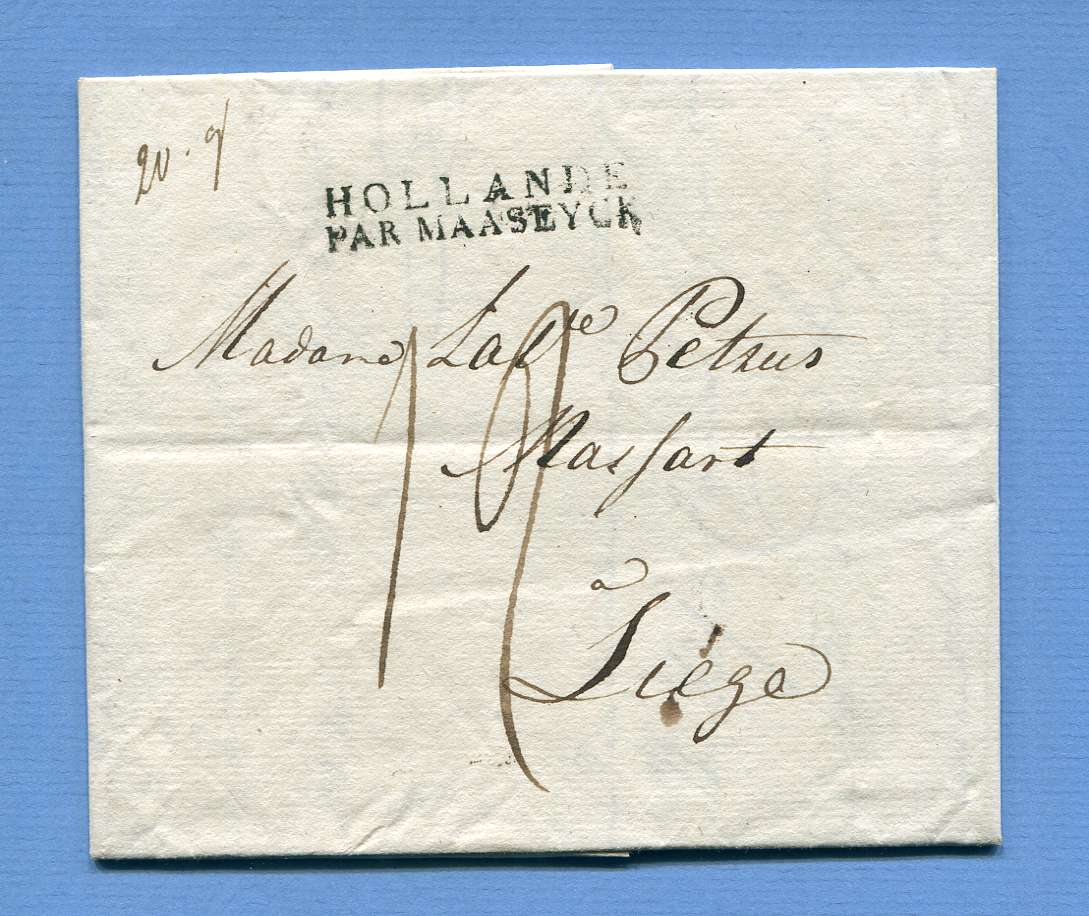 20. g
HOLLANDE
PAR MAASEYCK
Madame La Vve Petrus
Massart
à
Liége